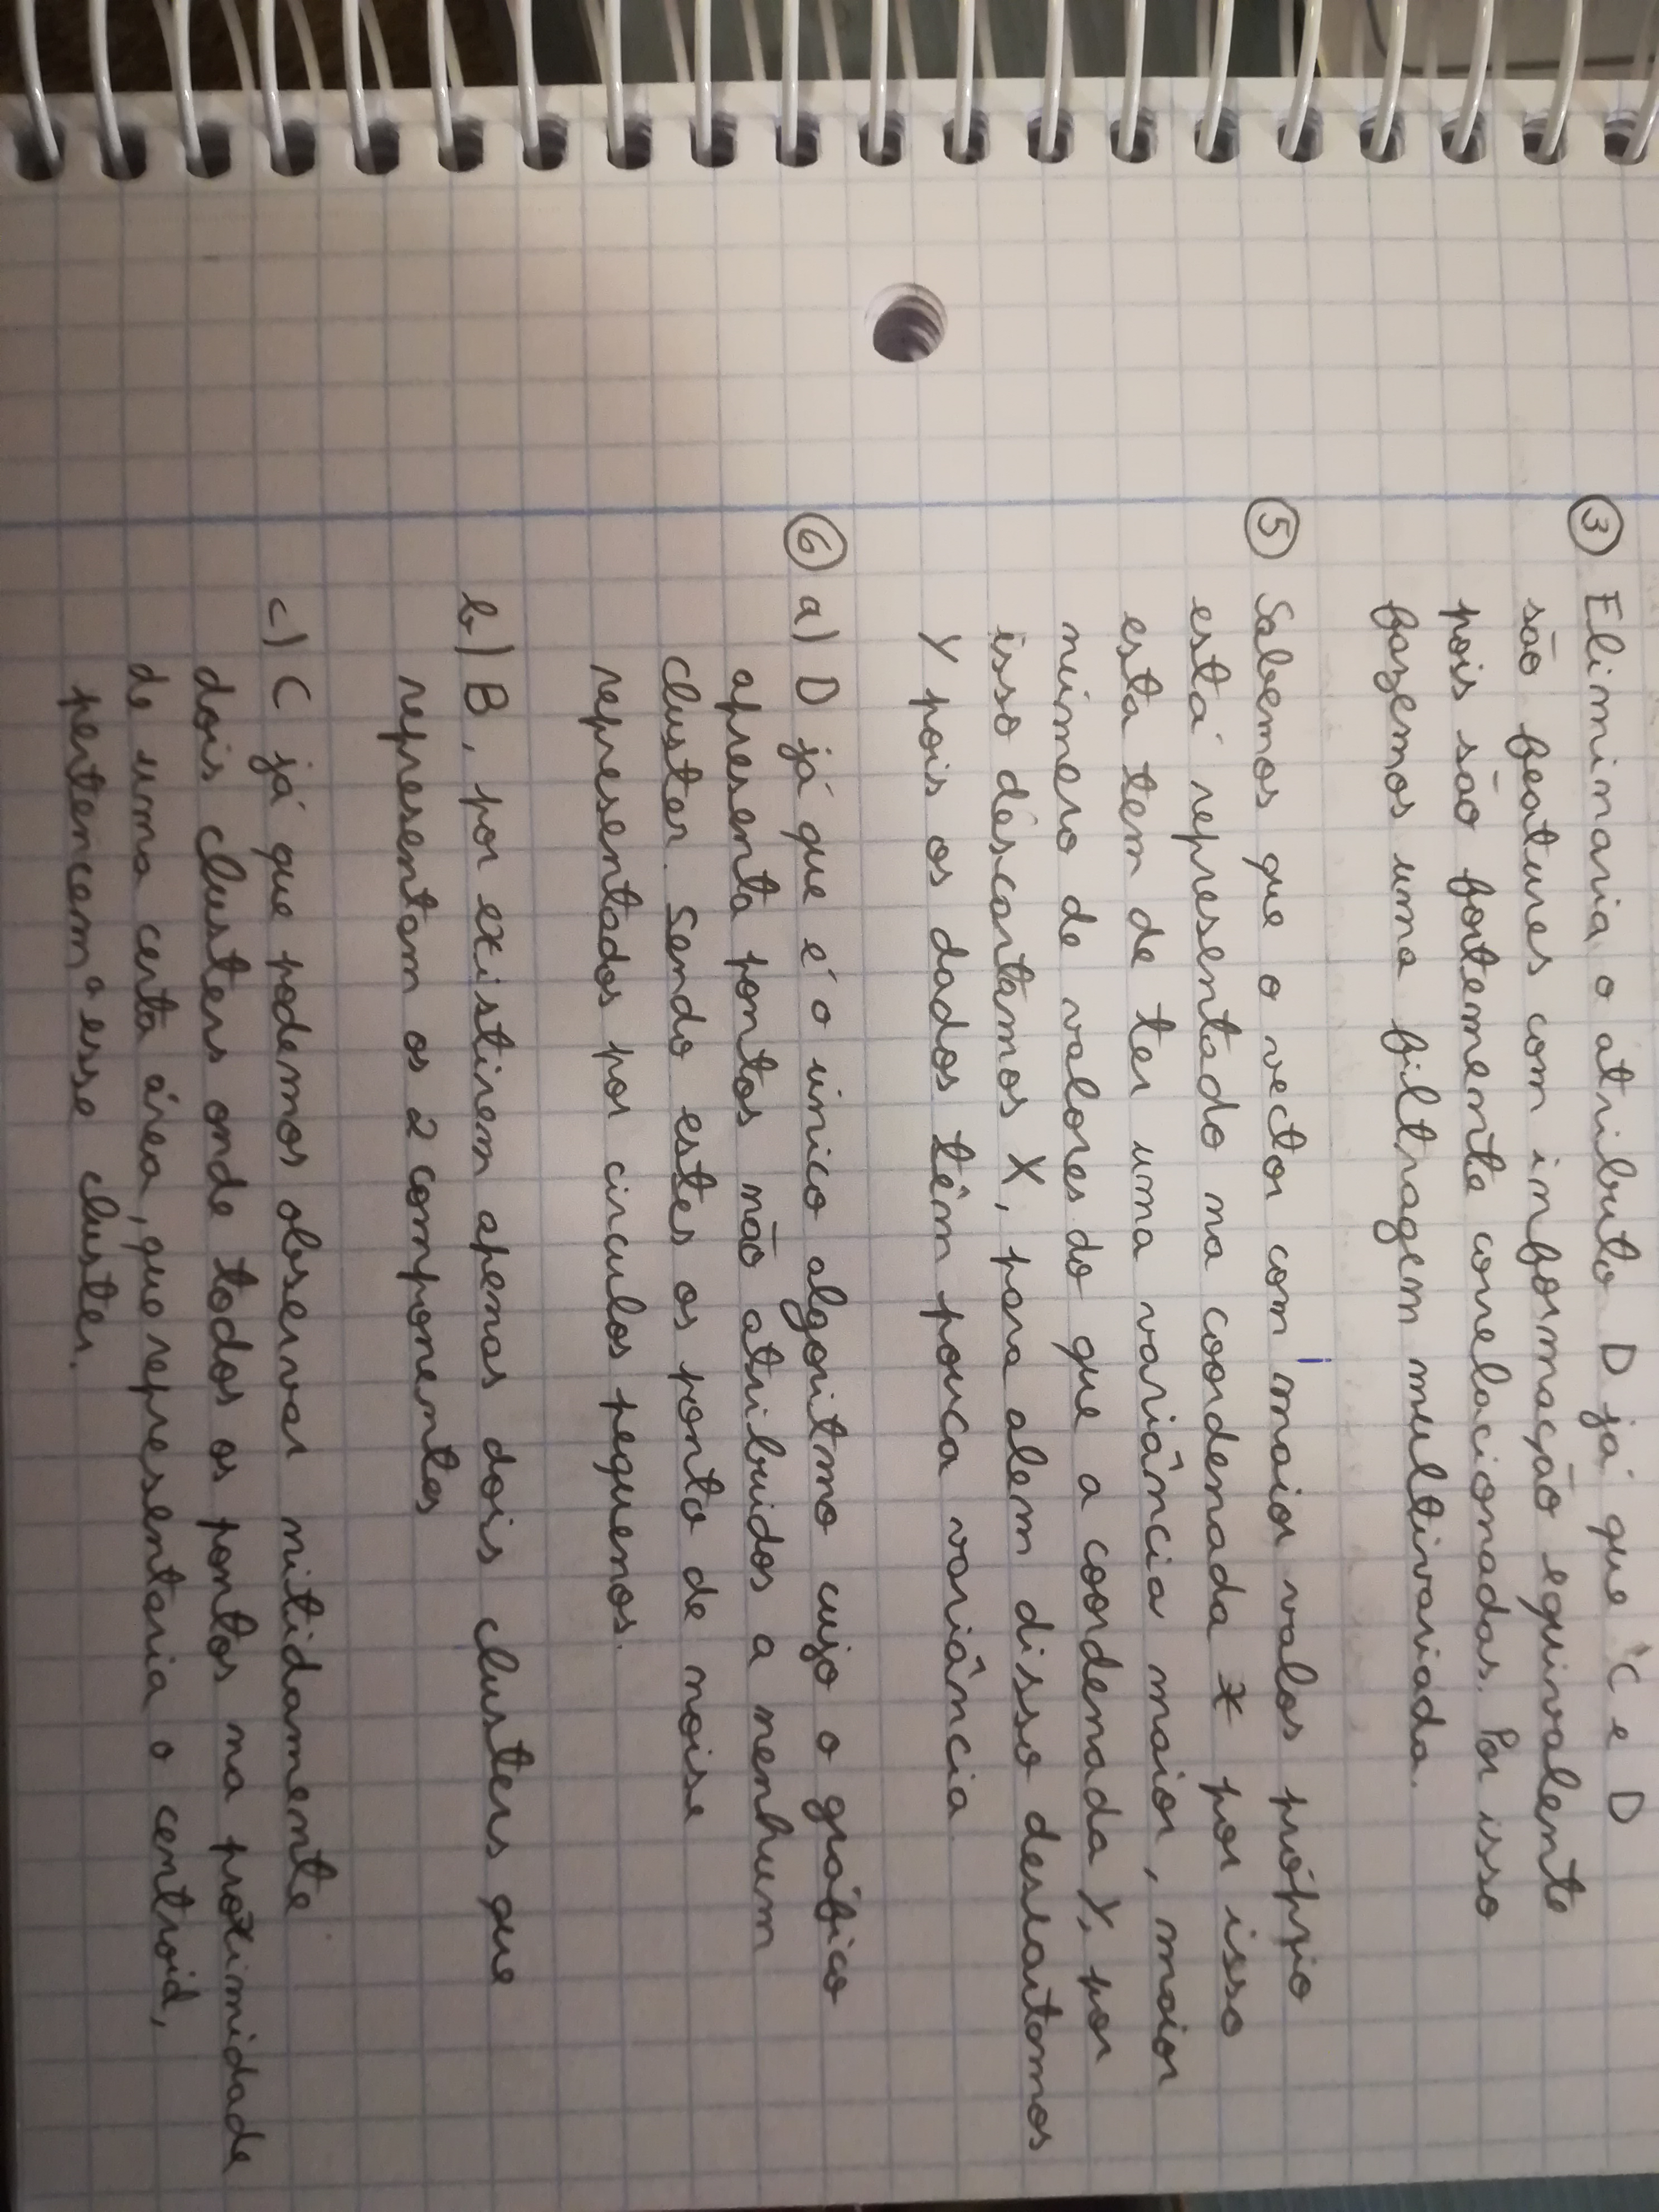 ③ Eliminaria o atributo D já que C e D
são features com informação equivalente
pois são fortemente correlacionadas. Por isso
fazemos uma filtragem multivariada.
⑤ Sabemos que o vector com maior valor próprio
está representado na coordenada X por isso
esta tem de ter uma variância maior, maior
número de valores do que a coordenada Y, por
isso descartamos X, para alem disso descartamos
Y pois os dados têm pouca variância
⑥ a) D já que é o unico algoritmo cujo o gráfico
apresenta pontos não atribuidos a nenhum
cluster. Sendo estes os ponto de noise
representados por circulos pequenos.
b) B, por existirem apenas dois clusters que
representam os 2 componentes
c) C já que podemos observar nitidamente
dois clusters onde todos os pontos na proximidade
de uma certa área, que representaria o centroid,
pertencem a esse cluster.